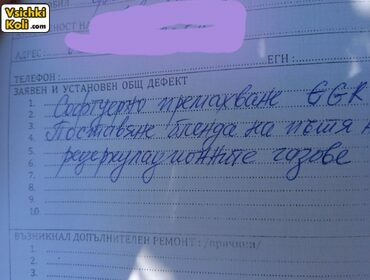 Vsichki
Koli.com
НОСТ НА
АДРЕС:
ЕГН :
ТЕЛЕФОН :
ЗАЯВЕН И УСТАНОВЕН ОБЩ ДЕФЕКТ
1. Софтуерно премахване EGR
2. Поставяне бленда на пътя на
3. рециркулационните газове
4.
5.
6.
7.
8.
9.
10.
ВЪЗНИКНАЛ ДОПЪЛНИТЕЛЕН РЕМОНТ : /причини/
1.
2.
3.